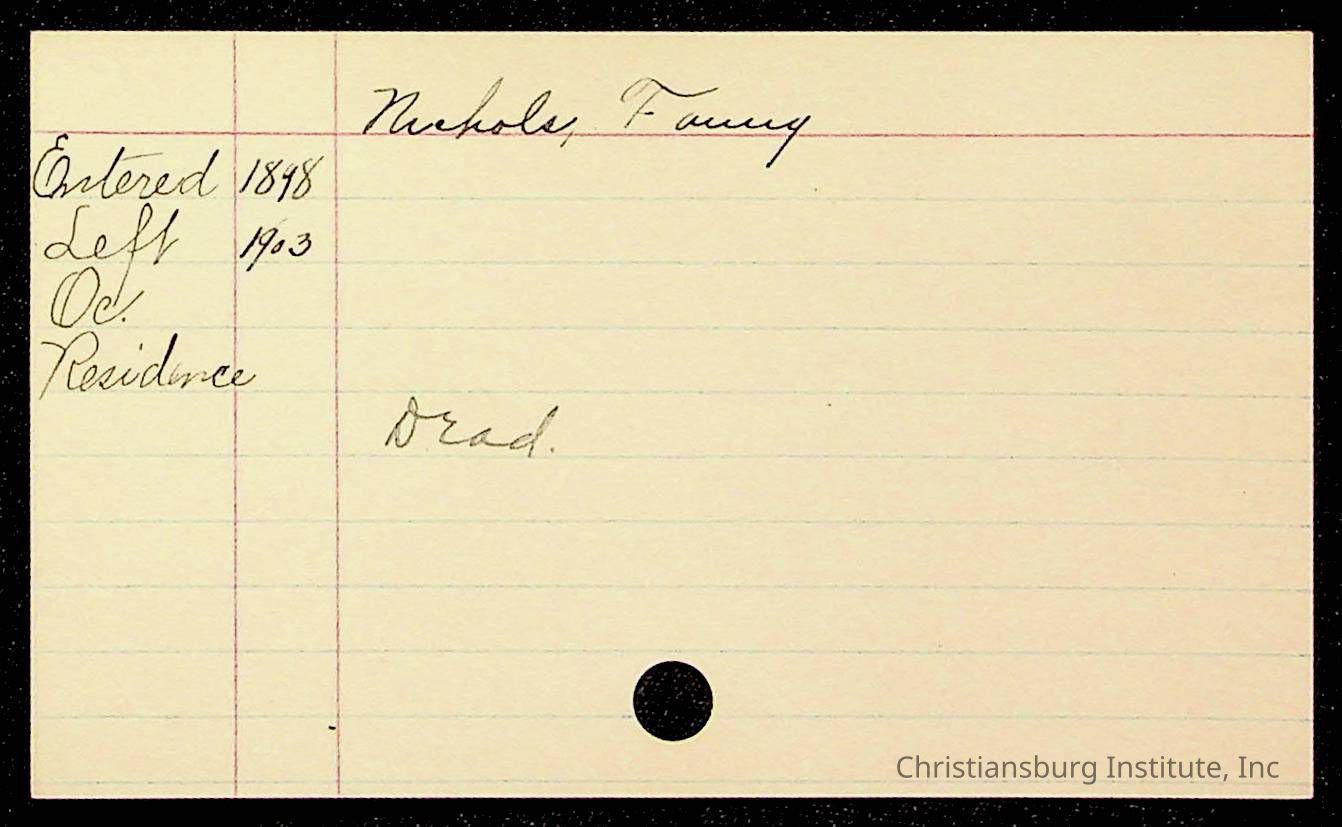 Nichols, Fanny
Entered 1898
Left 1903
Oc.
Residence
Dead.
Christiansburg Institute, Inc